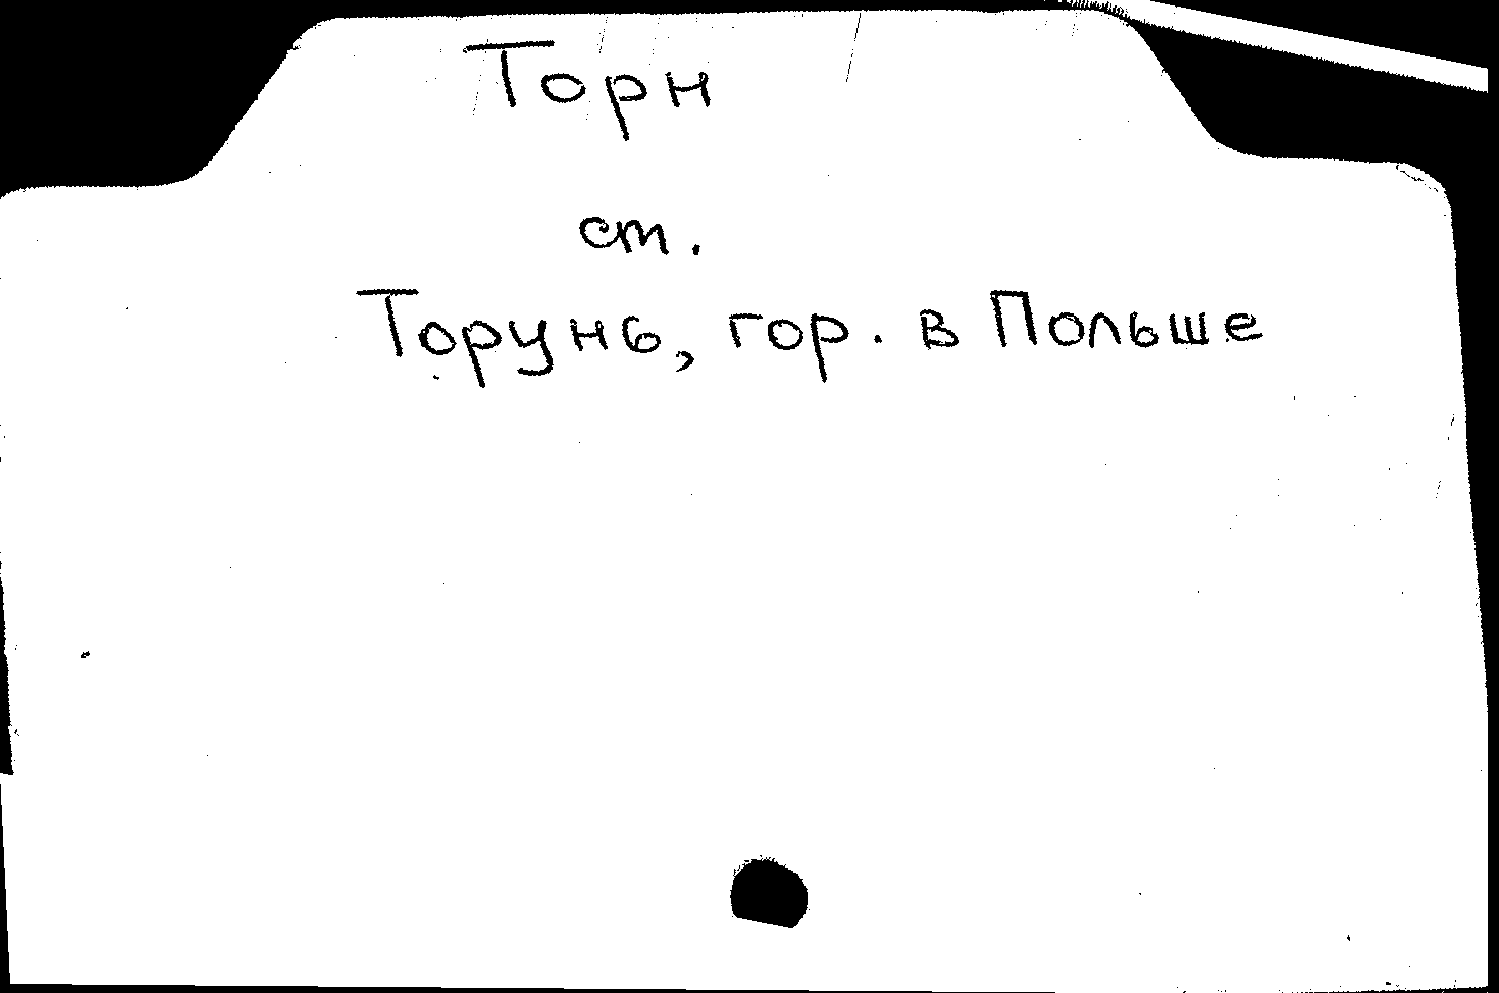 Торн
ст.
Торунь, гор. в Польше